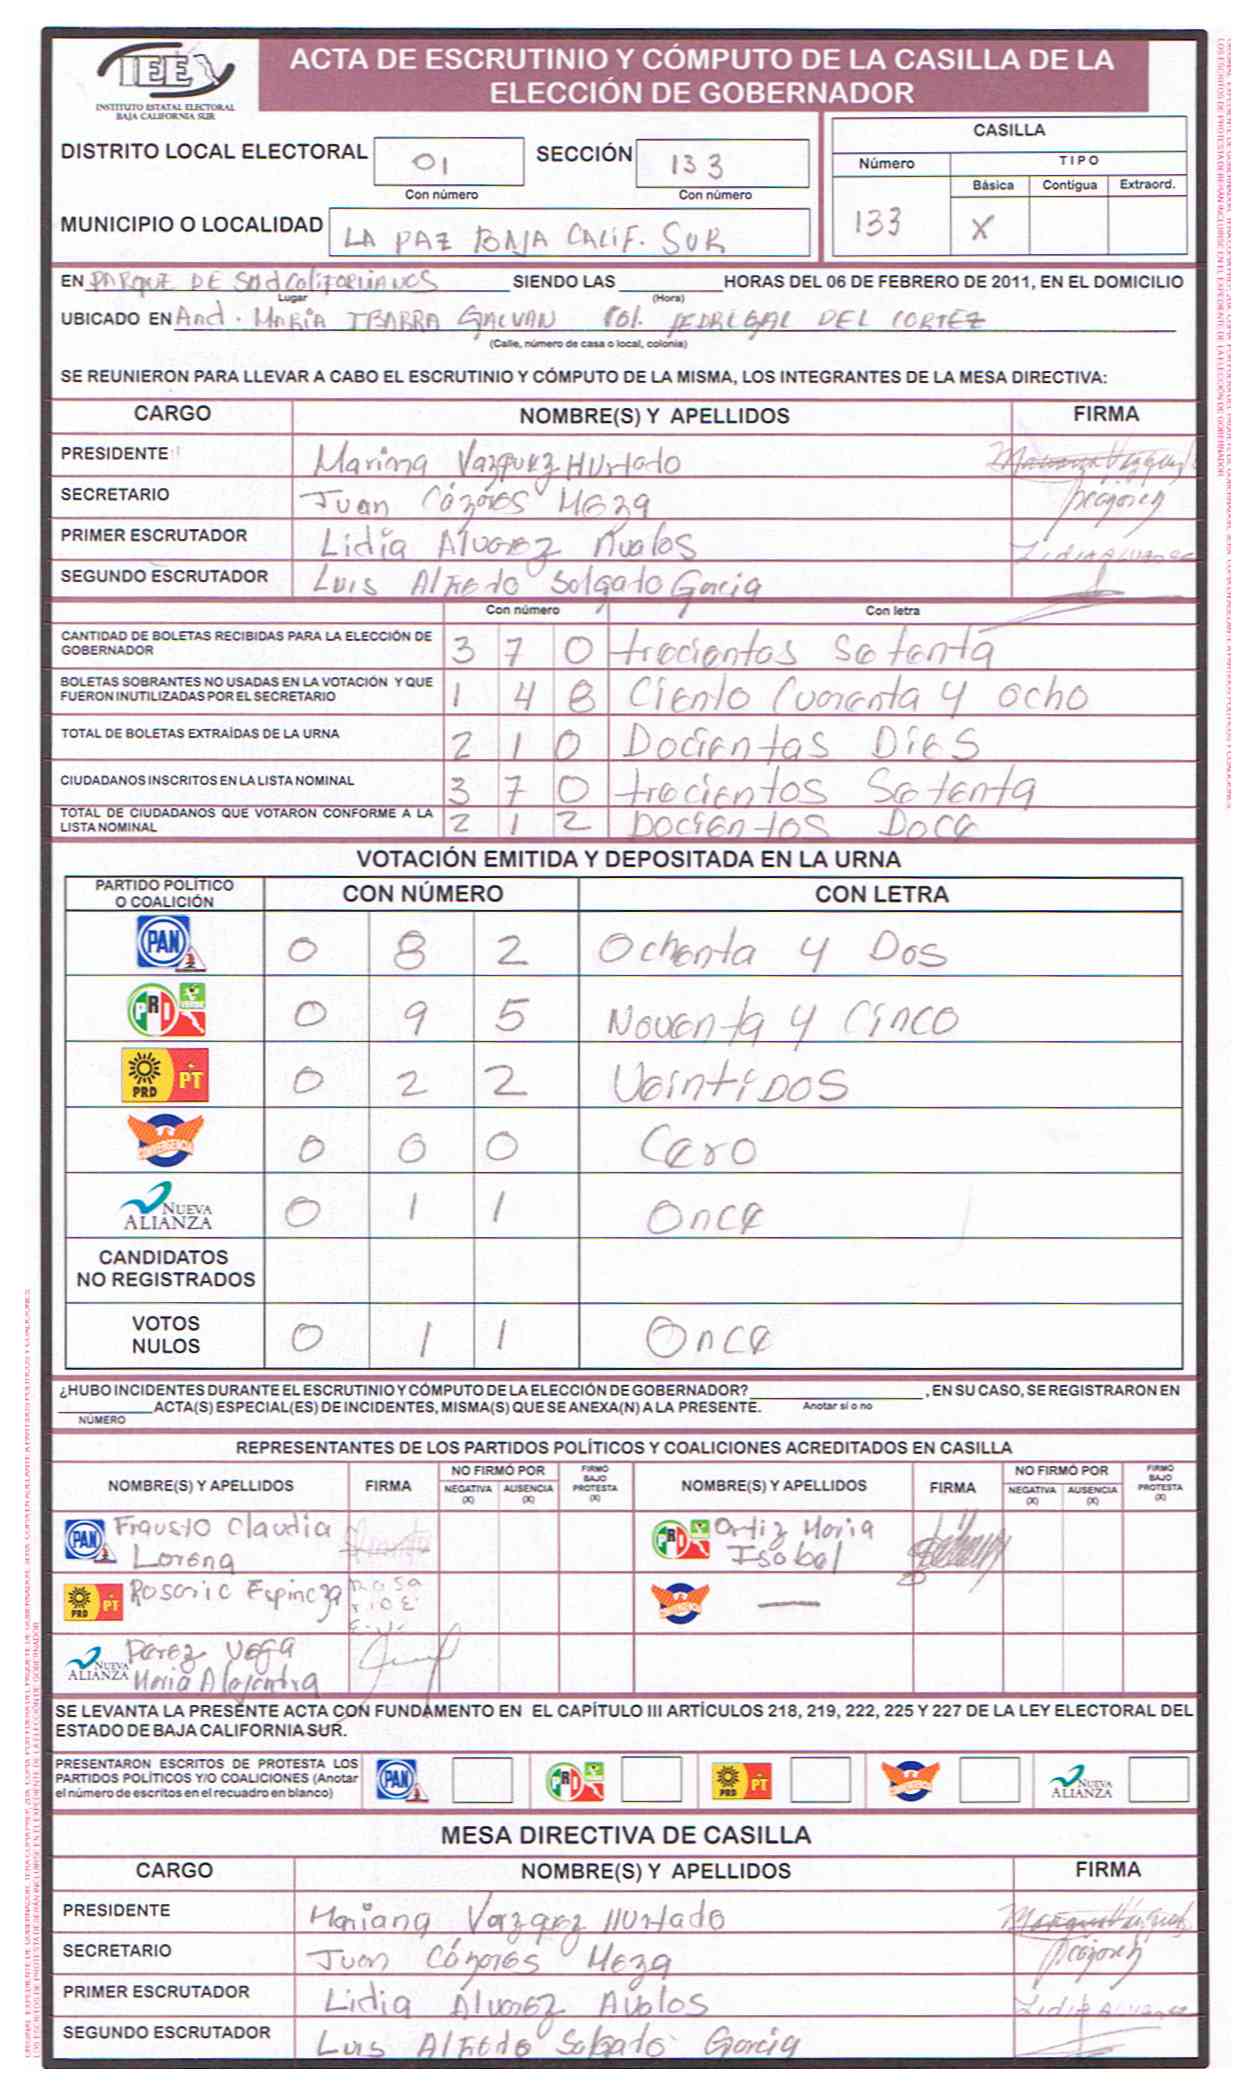 IEE
INSTITUTO ESTATAL ELECTORAL
BAJA CALIFORNIA SUR
ACTA DE ESCRUTINIO Y CÓMPUTO DE LA CASILLA DE LA
ELECCIÓN DE GOBERNADOR
DISTRITO LOCAL ELECTORAL 01 SECCIÓN 133
Con número Con número
MUNICIPIO O LOCALIDAD LA PAZ BAJA CALIF. SUR
CASILLA
Número TIPO
Básica Contigua Extraord.
133 X
EN PARQUE DE SudCaliforniANOS SIENDO LAS HORAS DEL 06 DE FEBRERO DE 2011, EN EL DOMICILIO
Lugar (Hora)
UBICADO EN And. MARIA IBARRA GALVAN Col. PEDREGAL DEL CORTEZ
(Calle, número de casa o local, colonia)
SE REUNIERON PARA LLEVAR A CABO EL ESCRUTINIO Y CÓMPUTO DE LA MISMA, LOS INTEGRANTES DE LA MESA DIRECTIVA:
CARGO NOMBRE(S) Y APELLIDOS FIRMA
PRESIDENTE Mariana Vazquez Hurtado
SECRETARIO Juan Cázares Meza
PRIMER ESCRUTADOR Lidia Alvarez Avalos Lidia Alvarez
SEGUNDO ESCRUTADOR Luis Alfredo Salgado Garcia
Con número Con letra
CANTIDAD DE BOLETAS RECIBIDAS PARA LA ELECCIÓN DE
GOBERNADOR 3 7 0 trecientos Setenta
BOLETAS SOBRANTES NO USADAS EN LA VOTACIÓN Y QUE
FUERON INUTILIZADAS POR EL SECRETARIO 1 4 8 Ciento Cuarenta y ocho
TOTAL DE BOLETAS EXTRAÍDAS DE LA URNA 2 1 0 Docientas Dies
CIUDADANOS INSCRITOS EN LA LISTA NOMINAL 3 7 0 trecientos Setenta
TOTAL DE CIUDADANOS QUE VOTARON CONFORME A LA
LISTA NOMINAL 2 1 2 Docientos Doce
VOTACIÓN EMITIDA Y DEPOSITADA EN LA URNA
PARTIDO POLÍTICO
O COALICIÓN CON NÚMERO CON LETRA
PAN 0 8 2 Ochenta y Dos
PRI VERDE 0 9 5 Noventa y Cinco
PRD PT 0 2 2 Veintidos
CONVERGENCIA 0 0 0 Cero
NUEVA ALIANZA 0 1 1 Once
CANDIDATOS
NO REGISTRADOS
VOTOS
NULOS 0 1 1 Once
¿HUBO INCIDENTES DURANTE EL ESCRUTINIO Y CÓMPUTO DE LA ELECCIÓN DE GOBERNADOR? , EN SU CASO, SE REGISTRARON EN
ACTA(S) ESPECIAL(ES) DE INCIDENTES, MISMA(S) QUE SE ANEXA(N) A LA PRESENTE. Anotar sí o no
NÚMERO
REPRESENTANTES DE LOS PARTIDOS POLÍTICOS Y COALICIONES ACREDITADOS EN CASILLA
NOMBRE(S) Y APELLIDOS FIRMA NO FIRMÓ POR NEGATIVA (X) AUSENCIA (X) FIRMÓ BAJO PROTESTA (X) NOMBRE(S) Y APELLIDOS FIRMA NO FIRMÓ POR NEGATIVA (X) AUSENCIA (X) FIRMÓ BAJO PROTESTA (X)
PAN Frausto Claudia PRI Ortiz Maria
Lorena Isabel
PRD PT Rosario Espinoza
NUEVA ALIANZA Perez Vega
Maria Alejandra
SE LEVANTA LA PRESENTE ACTA CON FUNDAMENTO EN EL CAPÍTULO III ARTÍCULOS 218, 219, 222, 225 Y 227 DE LA LEY ELECTORAL DEL
ESTADO DE BAJA CALIFORNIA SUR.
PRESENTARON ESCRITOS DE PROTESTA LOS
PARTIDOS POLÍTICOS Y/O COALICIONES (Anotar
el número de escritos en el recuadro en blanco) PAN PRI PRD PT NUEVA ALIANZA
MESA DIRECTIVA DE CASILLA
CARGO NOMBRE(S) Y APELLIDOS FIRMA
PRESIDENTE Mariana Vazquez Hurtado
SECRETARIO Juan Cázares Meza
PRIMER ESCRUTADOR Lidia Alvarez Avalos Lidia Alvarez
SEGUNDO ESCRUTADOR Luis Alfredo Salgado Garcia